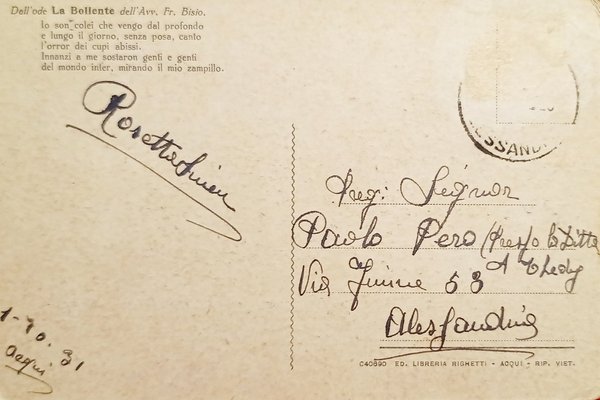 Dall'ode La Bollente dell'Avv. Fr. Bisio.
Io son colei che vengo dal profondo
e lungo il giorno, senza posa, canto
l'orror dei cupi abissi.
Innanzi a me sostaron genti e genti
del mondo inter, mirando il mio zampillo.
ESSAND
Preg: Signor
Paolo Pero (presso la Ditta
Via 53
Alessandria
1-10.31
Acqui
C40690 ED. LIBRERIA RIGHETTI - ACQUI - RIP. VIET.